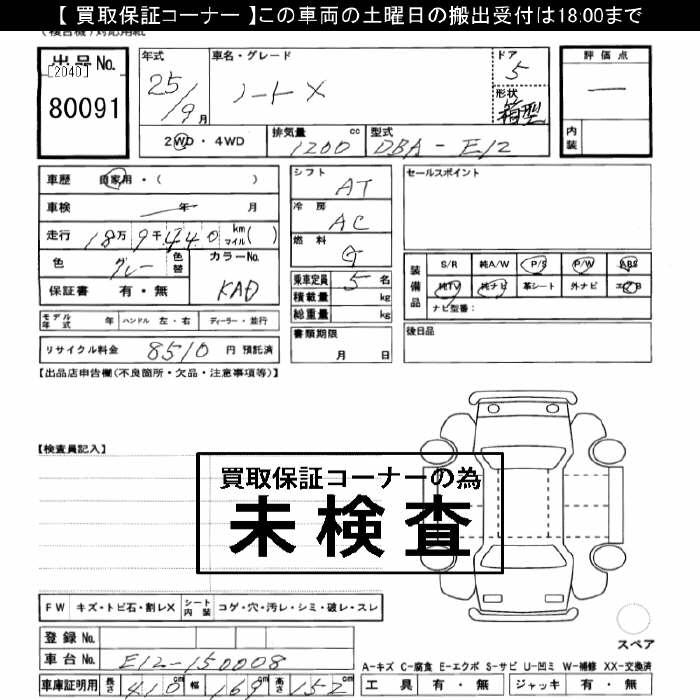 【 買取保証コーナー 】この車両の土曜日の搬出受付は18:00まで
出品No.
[2040]
80091
年式
25/9月
車名・グレード
ノート X
ドア
5
形状
箱型
評価点
—
内装
2WD・4WD
排気量 1200 cc
型式 DBA-E12
車歴 自家用・( )
車検 年 月
走行 18万9千440 km マイル( )
色 グレー 色替
カラーNo. KAD
保証書 有・無
シフト AT
冷房 AC
燃料 G
乗車定員 5 名
積載量 kg
総重量 kg
書類期限
月 日
セールスポイント
装備品
S/R 純A/W P/S P/W ABS
純TV 純ナビ 革シート 外ナビ エアB
ナビ型番:
後日品
モデル年式 年 ハンドル 左・右 ディーラー・並行
リサイクル料金 8510 円 預託済
【出品店申告欄(不良箇所・欠品・注意事項等)】
【検査員記入】
買取保証コーナーの為
未検査
FW キズ・トビ石・割レX シート内装 コゲ・穴・汚レ・シミ・破レ・スレ
登録No.
車台No. E12-150008
車庫証明用 長さ 410 cm 幅 169 cm 高さ 152 cm
スペア
A-キズ C-腐食 E-エクボ S-サビ U-凹ミ W-補修 XX-交換済
工具 有・無 ジャッキ 有・無